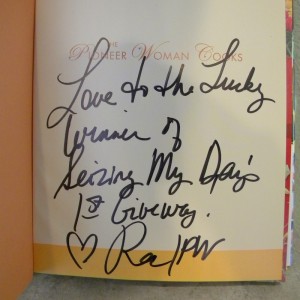 THE
PIONEER WOMAN COOKS
Love to the Lucky
Winner of
Seizing My Day's
1st Giveway.
♡ Ree/PW